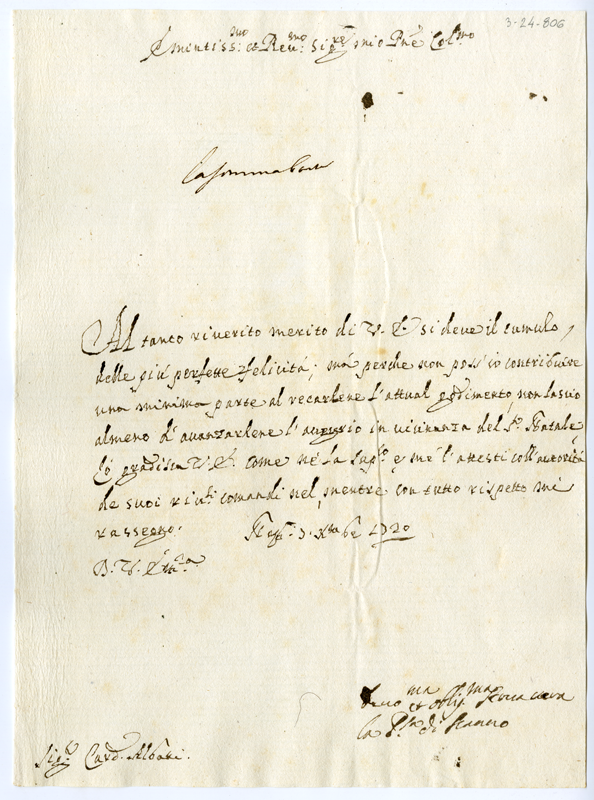 3-24-806
Emintiss:mo et Reu:mo Sig:re mio Pne Col:mo
Al tanto riuerito merito di V. E. si deue il cumulo,
delle piú perfette felicitá; má perche non poss' io contribuire
una minima parte al recarlene l'attual godimento, non lascio
almeno d' auanzarlene l'augurio in uicinanza del S.to Natale,
Lo gradisca V. E. come ne la sup.co e me l'attesti coll' autoritá
de suoi riu.ti comandi nel mentre con tutto rispetto mi
rassegno. 3. Xbre 1720
D. V. Em.za
Deuo.ma et obli.ma Serua uera
la P.sa di
Sig.r Card. Albani.